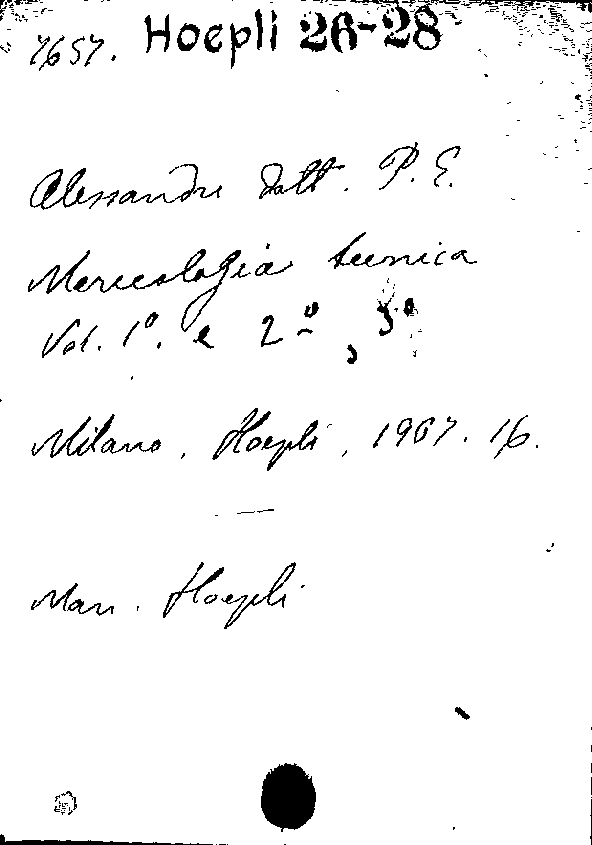 7657. Hoepli 26-28
Alessandri dott. P. E.
Merceologia tecnica
Vol. 1º. e 2º, 3º
Milano, Hoepli, 1907. 16.
Man. Hoepli